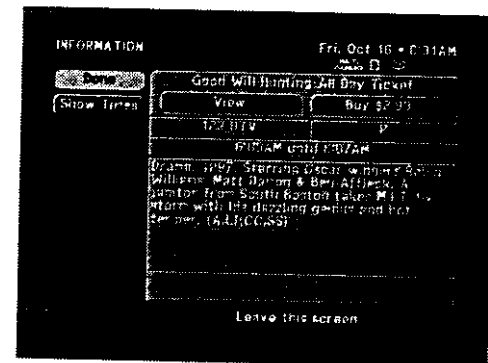 INFORMATION
Fri, Oct 16 • 8:31AM
Done
Good Will Hunting: All Day Ticket
Show Times
View
Buy $2.99
122 DTV
6:05AM until 8:07AM
Drama. 1997. Starring Oscar winners Robin
Williams, Matt Damon & Ben Affleck. A
janitor from South Boston takes M.I.T. by
storm with his dazzling genius and hot
temper.
Leave this screen